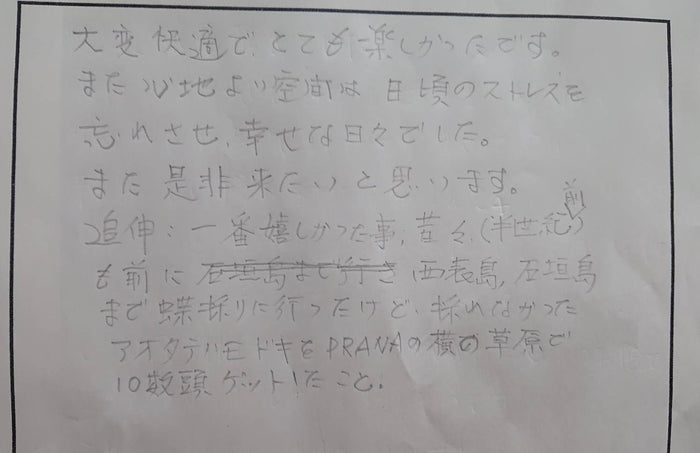 大変快適で、とても楽しかったです。
また心地よい空間は日頃のストレスを
忘れさせ、幸せな日々でした。
また是非来たいと思います。
前
追伸:一番嬉しかった事、昔々、(半世紀)
も前に石垣島まで行き西表島、石垣島
まで蝶採りに行ったけど、採れなかった
アオタテハモドキをPRANAの横の草原で
10数頭ゲットしたこと。